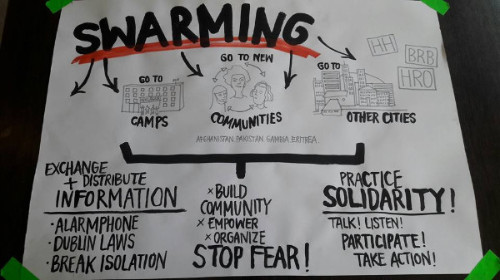 SWARMING
HH
BRB
HRO
GO TO
CAMPS
GO TO NEW
COMMUNITIES
GO TO
OTHER CITIES
AFGHANISTAN. PAKISTAN. GAMBIA. ERITREA.
EXCHANGE
+ DISTRIBUTE
INFORMATION
• ALARMPHONE
• DUBLIN LAWS
• BREAK ISOLATION
× BUILD
COMMUNITY
× EMPOWER
× ORGANIZE
STOP FEAR!
PRACTICE
SOLIDARITY!
TALK! LISTEN!
PARTICIPATE!
TAKE ACTION!